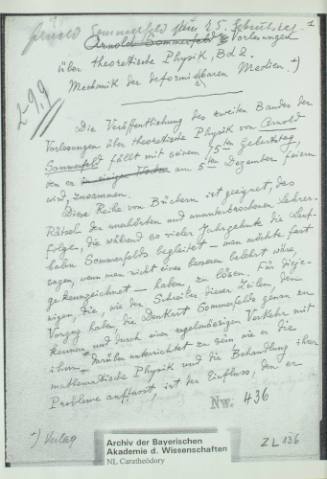 Arnold Sommerfeld zum 75. Geburtstag 1
Arnold Sommerfeld Vorlesungen
über theoretische Physik, Bd 2.
Mechanik der deformierbaren Medien. *)
299
Die Veröffentlichung des zweiten Bandes der
Vorlesungen über theoretische Physik von Arnold
Sommerfeld fällt mit seinem 75ten Geburtstag,
den er am 5ten Dezember feiern
wird, zusammen.
Diese Reihe von Büchern ist geeignet, das
Rätsel des unerhörten und ununterbrochenen Lehrer-
folges, die während so vieler Jahrzehnte die Lauf-
bahn Sommerfelds begleitet – man möchte fast
sagen, wenn man nicht eines besseren belehrt wäre,
gekennzeichnet – haben, zu lösen. Für dieje-
nigen die, wie der Schreiber dieser Zeilen, den
Vorzug haben, die Denkart Sommerfelds genau zu
kennen und durch einen regelmässigen Verkehr mit
ihm darüber unterrichtet zu sein wie er die
mathematische Physik und die Behandlung ihrer
Probleme auffasst ist der Einfluss, den er
Nr. 436
*) Verlag
Archiv der Bayerischen
Akademie d. Wissenschaften
NL Caratheódory
ZL 136